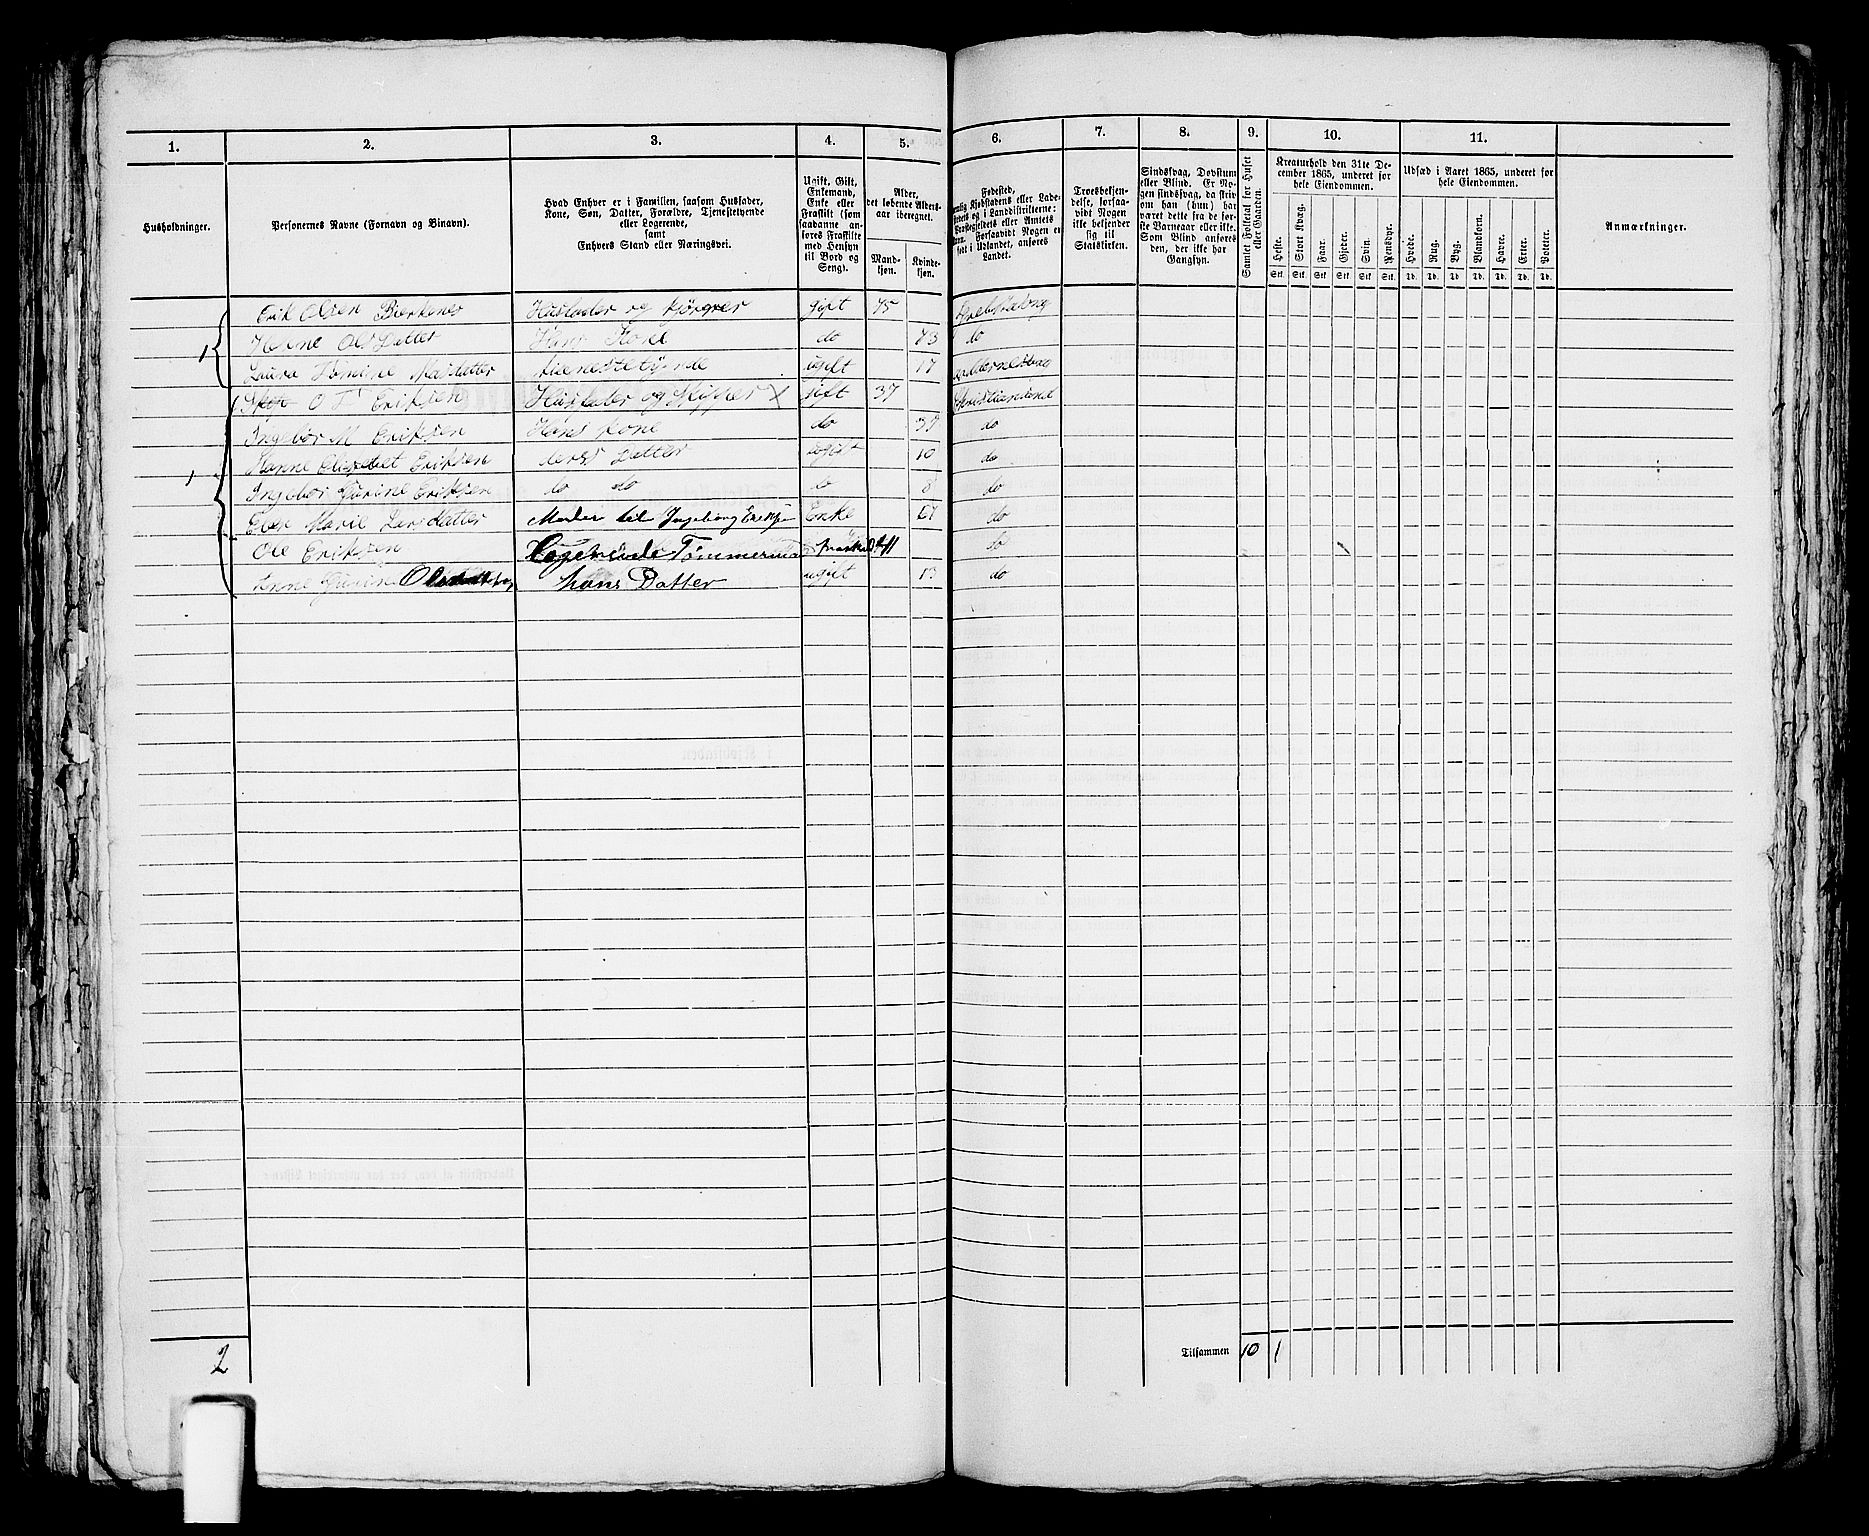 1. 2. 3. 4. 5. 6. 7. 8. 9. 10. 11.
Husholdninger.
Personernes Navne (Fornavn og Binavn).
Hvad Enhver er i Familien, saasom Husfader,
Kone, Søn, Datter, Forældre, Tjenestetyende
eller Logerende,
samt
Enhvers Stand eller Næringsvei.
Ugift, Gift,
Enkemand,
Enke eller
Fraskilt (som
saadanne an-
føres Fraskilte
med Hensyn
til Bord og
Seng).
Alder,
det løbende Alders-
aar iberegnet.
Mand-
kjøn.
Kvinde-
kjøn.
Fødested,
Kjøbstadens eller Lade-
og i Landdistrikterne:
Præstegjeldets eller Amtets
Navn. Forsaavidt Nogen er
født i Udlandet, anføres
Landet.
Troesbekjen-
delse, forsaa-
vidt Nogen
ikke bekjender
sig til
Statskirken.
Sindssvag, Døvstum
eller Blind. Er No-
gen sindssvag, da skriv
om han (hun) har
været dette fra de før-
ste Barneaar eller ikke.
Som Blind anføres
den, der ikke har
Gangsyn.
Samlet Folketal for Huset
eller Gaarden.
Kreaturhold den 31te De-
cember 1865, underet for
hele Eiendommen.
Heste. Stort Kvæg. Faar. Gjeder. Svin. Rensdyr.
Stk. Stk. Stk. Stk. Stk. Stk.
Udsæd i Aaret 1865, underet for
hele Eiendommen.
Hvede. Rug. Byg. Blandkorn. Havre. Erter. Poteter.
Td. Td. Td. Td. Td. Td. Td.
Anmærkninger.
Erik Olsen Bierkenes Husfader og gift 75
1 Hanne Ols Datter Hans Kone do 73 do
Laura Tomine datter Tienestetyende ugift 17
O T Eriksen Husfader og Skipper X gift 37 Christiansand
Ingebor M Eriksen Hans kone do 37 do
1 Hanne Olisebet Eriksen deres Datter ugift 10 do
Ingebor Gurine Eriksen do do do 8 do
Elen Marie Larsdatter Moder til Ingeborg Eriksen Enke 67 do
Ole Eriksen Logerende Tømmermand fraskildt 41 do
Anne Gurine hans Datter ugift 13 do
2 Tilsammen 10 1